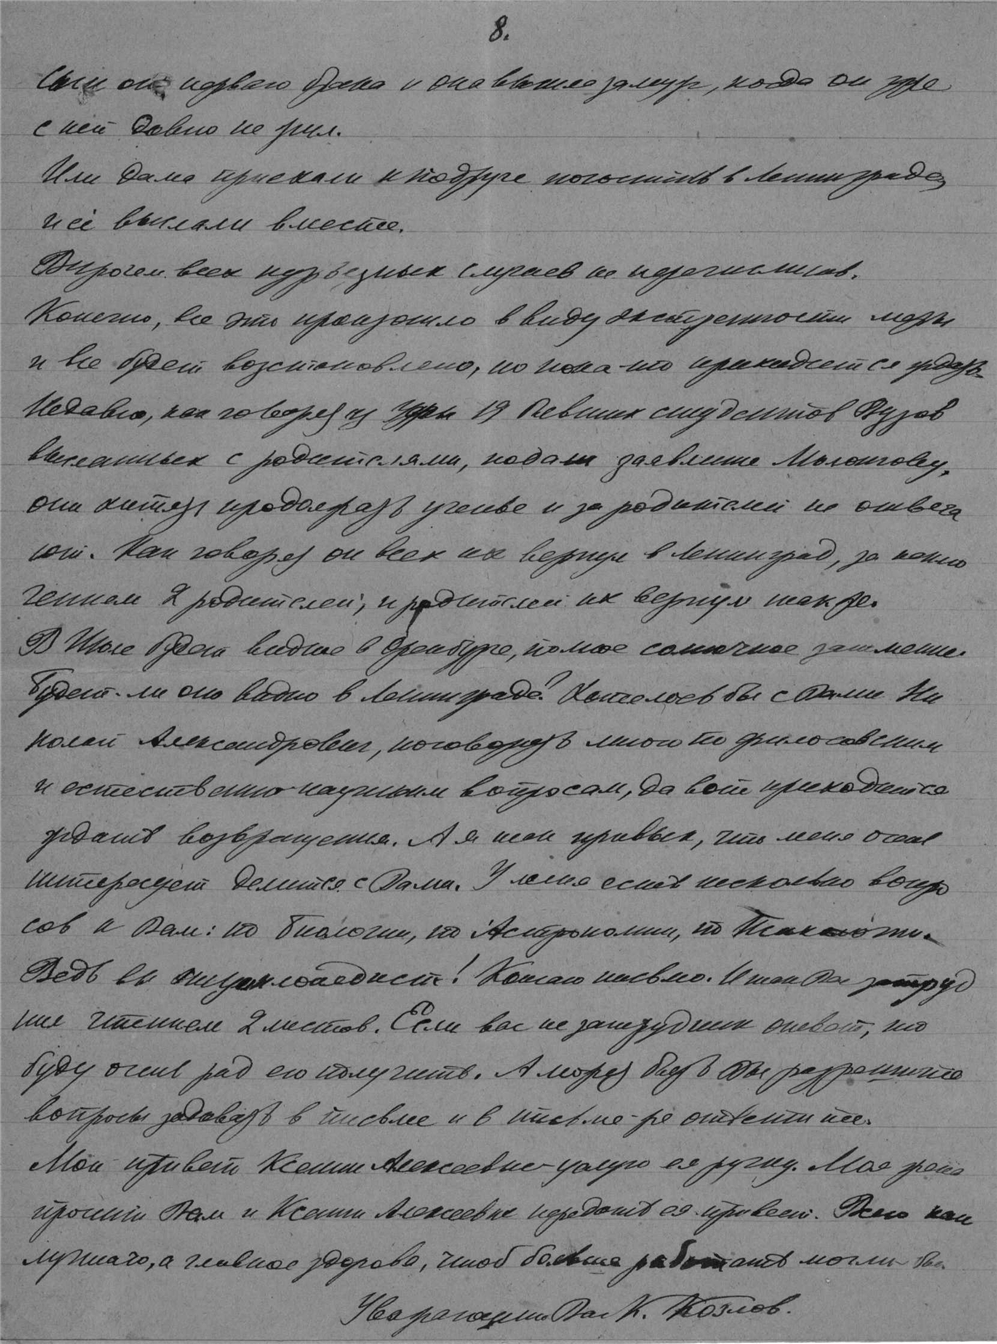 8.
Сын от первого брака и она вышла замуж, когда он уже
с ней давно не жил.
Или дама приехала к подруге погостить в Ленинграде,
и её выслали вместе.
Впрочем всех курьезных случаев не перечислить.
Конечно, все это произошло в виду экстренности меры
и все будет возстановлено, но пока-что приходится ждать.
Недавно, как говорят из Уфы 19 бывших студентов Вузов
высланных с родителями, подали заявление Молотову,
они хотят продолжать ученье и за родителей не отвеча
ют. Как говорят он всех их вернул в Ленинград, за исклю
чением 2 родителей, и родителей их вернул также.
В Июне будет видное в Оренбурге, полное солнечное затмение.
Будет-ли оно видно в Ленинграде? Хотелось бы с Вами Ни
колай Александрович, поговорить много по философским
и естественно-научным вопросам, да вот приходится
ждать возвращения. А я так привык, что меня очень
интересует делится с Вами. У меня есть несколько вопро
сов к Вам: по биологии, по Астрономии, по
Ведь вы энциклопедист! Кончаю письмо. И так Вас затруд
нил чтением 2 листов. Если вас не затруднит ответ, то
буду очень рад его получить. А может быть Вы разрешите
вопросы задавать в письме и в письме-же ответите.
Мой привет Ксении Алексеевне-целую ея ручку. Моя жена
просит Вам и Ксении Алексеевне передать ея привет. Всего наи
лучшаго, а главное здоровья, чтоб больше работать могли бы.
Уважающий Вас К. Козлов.